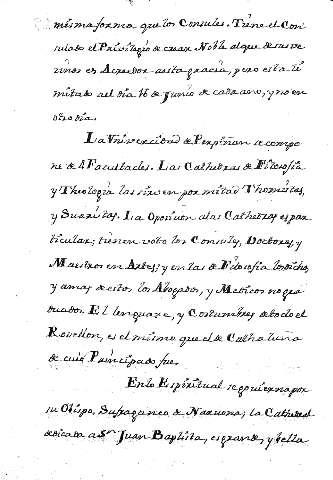 misma forma que los Consules. Tiene el Con
sulado el Privilegio de crear Noble al que de sus ve
cinos es Acreedor a esta gracia, pero esta li
mitado al dia 16 de Junio de cada año, y no en
otro dia.
La Univercidad de Perpiñan se compo
ne de 4 Facultades. Las Cathedras de Filosofia
y Theologia las sirven por mitad Thomistas,
y Suaristas. La Oposicion a las Cathedras es par
ticular; tienen voto los Consules, Doctores, y
Maestros en Artes; y en las de Filosofia los dichos,
y amas de estos los Abogados, y Medicos no gra
duados. El lenguaxe, y Costumbres de todo el
Rosellon, es el mismo que el de Cathaluña
de cuio Principado fue.
En lo Espiritual se govierna por
su Obispo, Sufraganeo de Narvona; la Cathedral
dedicada a Sn. Juan Baptista, es grande, y bella